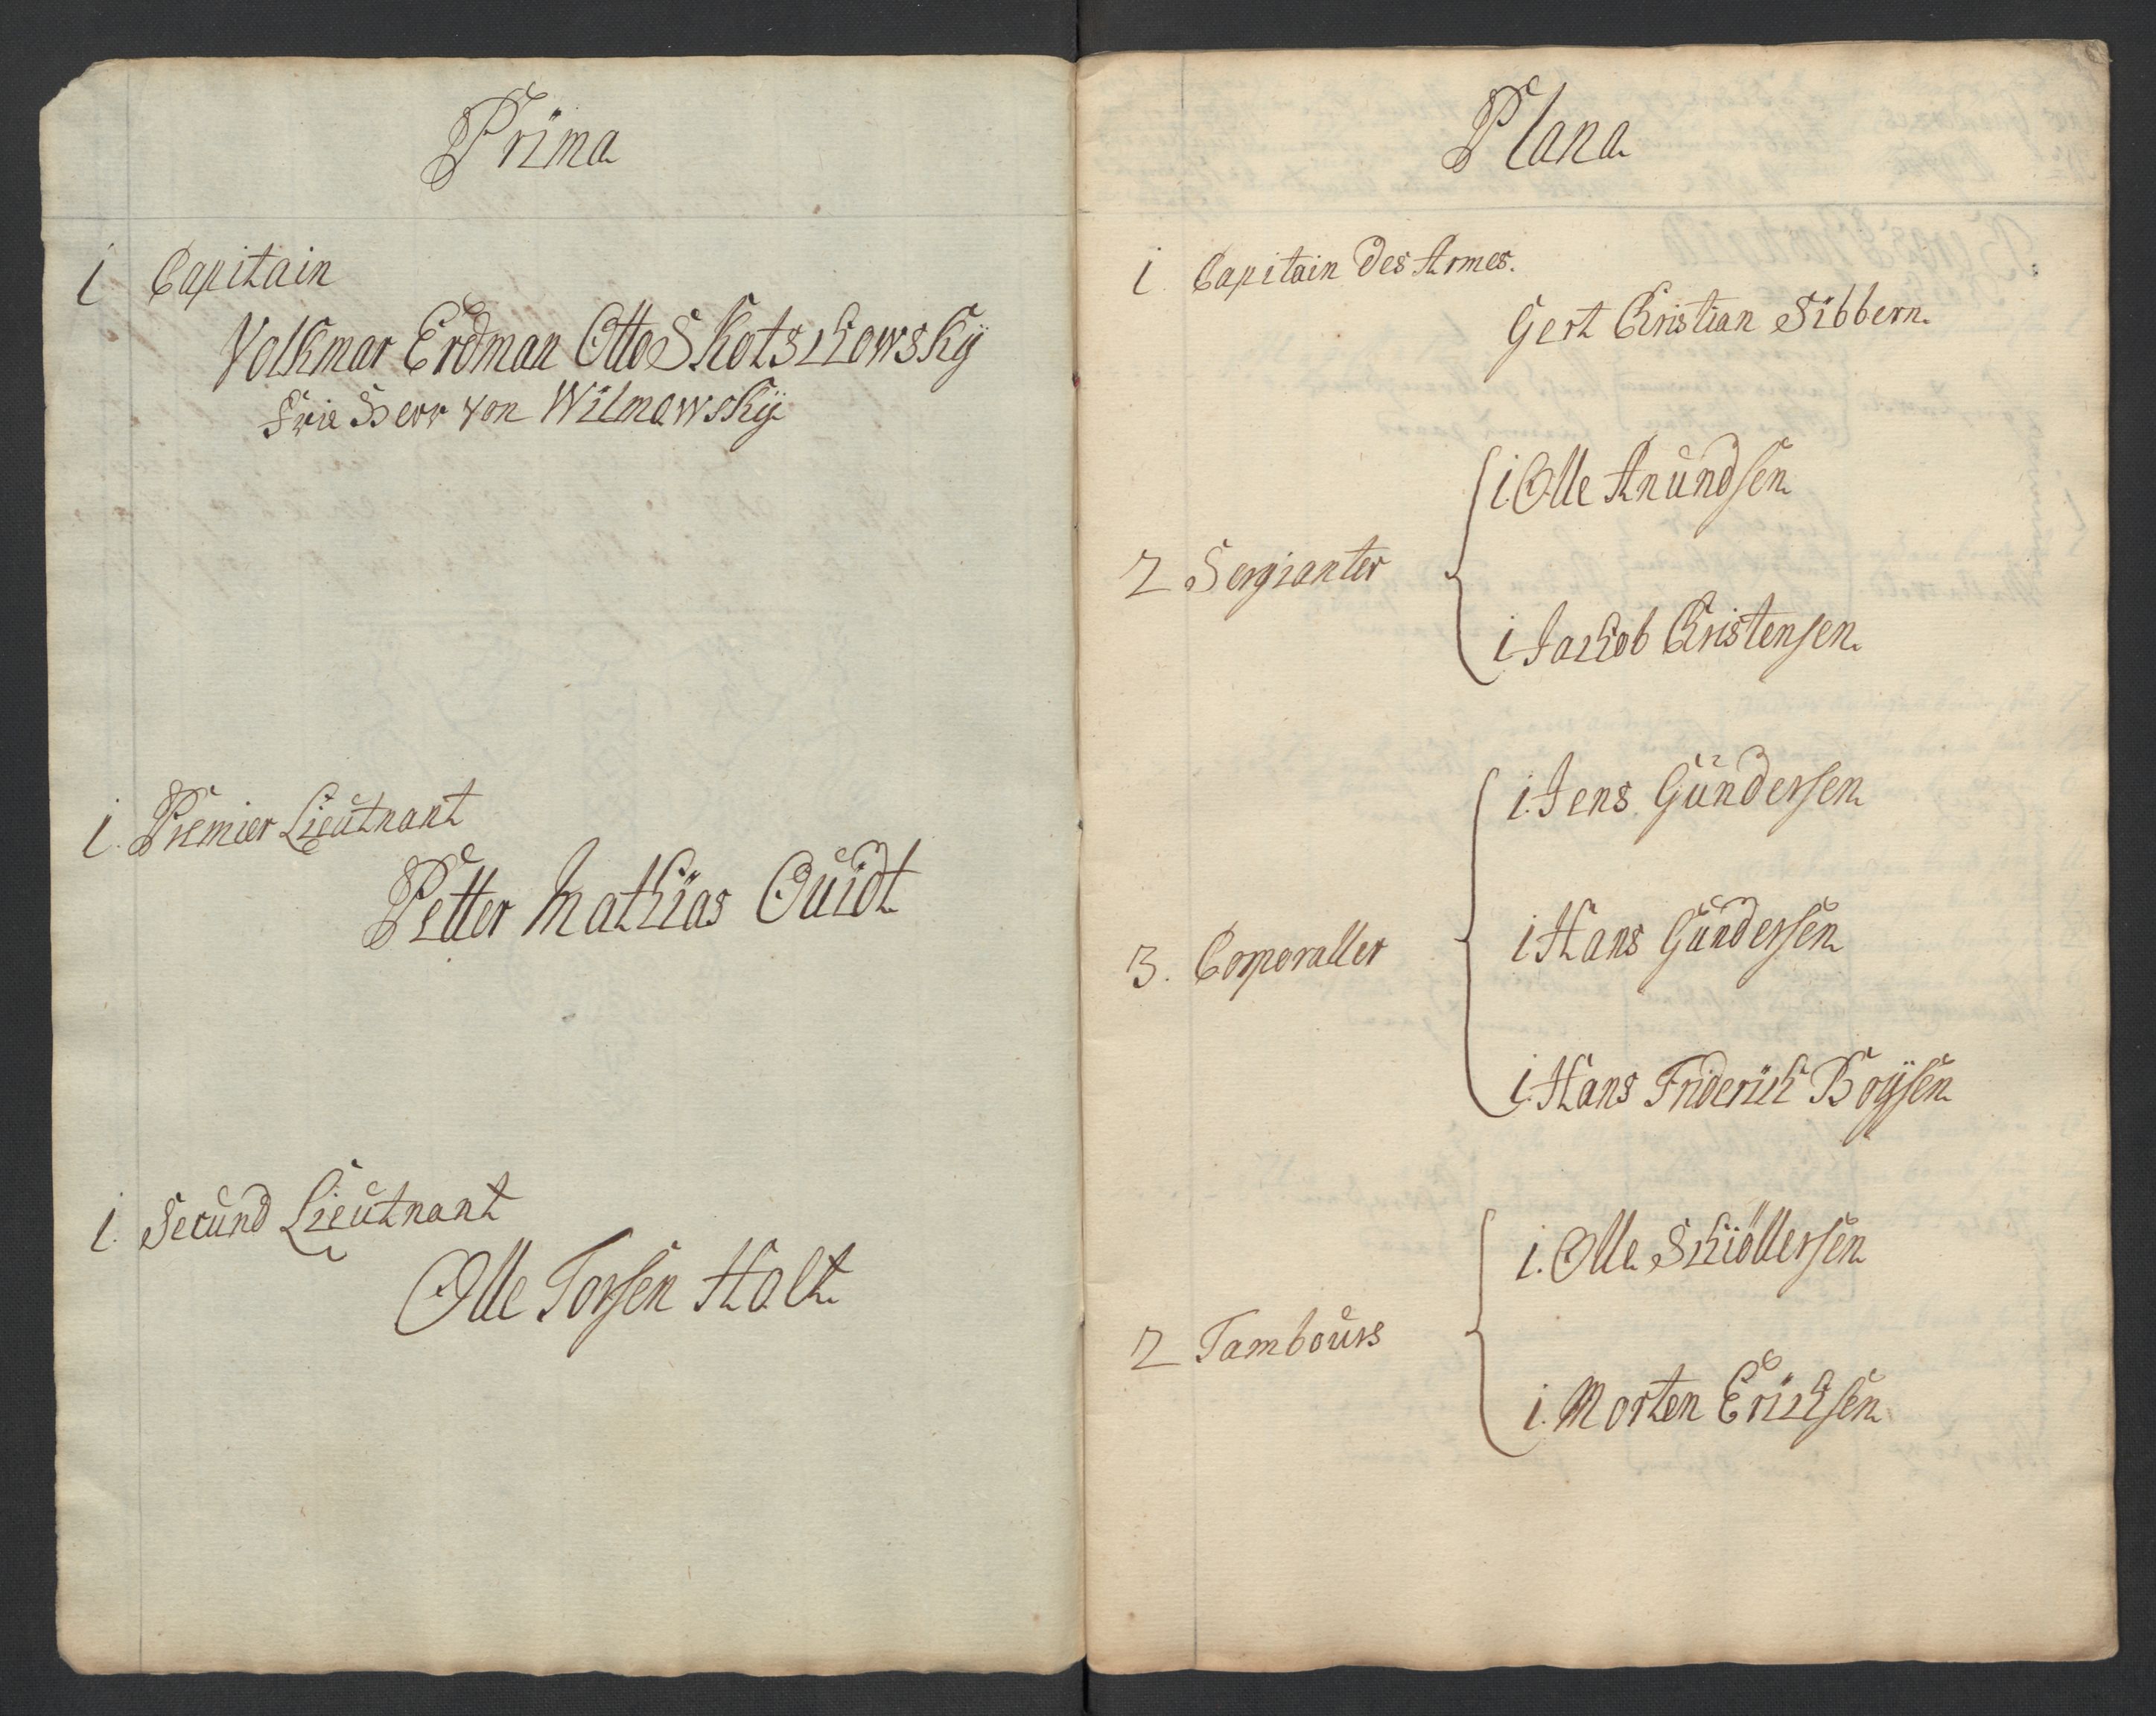 Prima
1 Capitain
Volkmar Erdman Otto Skotskowsky
Frie Herr von Wilmowsky
1. Premier Lieutnant
Petter Mathias Quidt
1. Secund Lieutnant
Olle Torsen Holt
Plana
1. Capitain des Armes.
Gert Christian Sibbern.
2 Sergianter
1. Olle Anundsen
1 Jackob Christensen.
3. Corporaller
1. Jens Gundersen
1 Hans Gundersen
1. Hans Friderich Boÿsen
2 Tambours
1. Olle Skiöllersen
1. Morten Erichsen